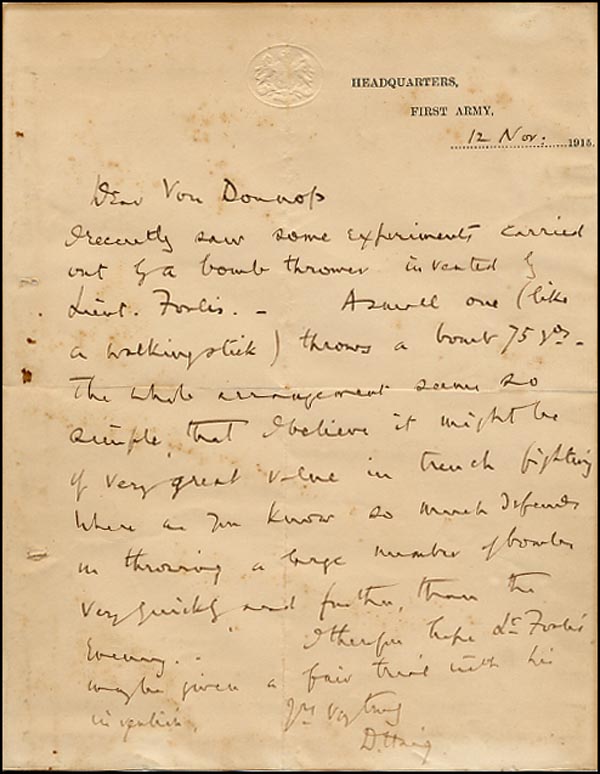 HEADQUARTERS,
FIRST ARMY,
12 Nov. 1915.
Dear Von Donnop
I recently saw some experiments carried
out by a bomb thrower invented by
Lieut. Forbis. — A small one (like
a walking stick) throws a bomb 75 yds —
The whole arrangement seems so
simple, that I believe it might be
of very great value in trench fighting
where as you know so much depends
on throwing a large number of bombs
very quickly and further, than the
Enemy. . I therefore hope Lt Forbis
may be given a fair trial with his
invention. Yrs vy truly
D. Haig